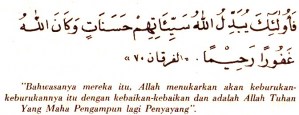 فَأُولَٰئِكَ يُبَدِّلُ اللَّهُ سَيِّئَاتِهِمْ حَسَنَاتٍ وَكَانَ اللَّهُ
غَفُورًا رَحِيمًا. «الفرقان ٧٠»
"Bahwasanya mereka itu, Allah menukarkan akan keburukan-
keburukannya itu dengan kebaikan-kebaikan dan adalah Allah Tuhan
Yang Maha Pengampun lagi Penyayang".